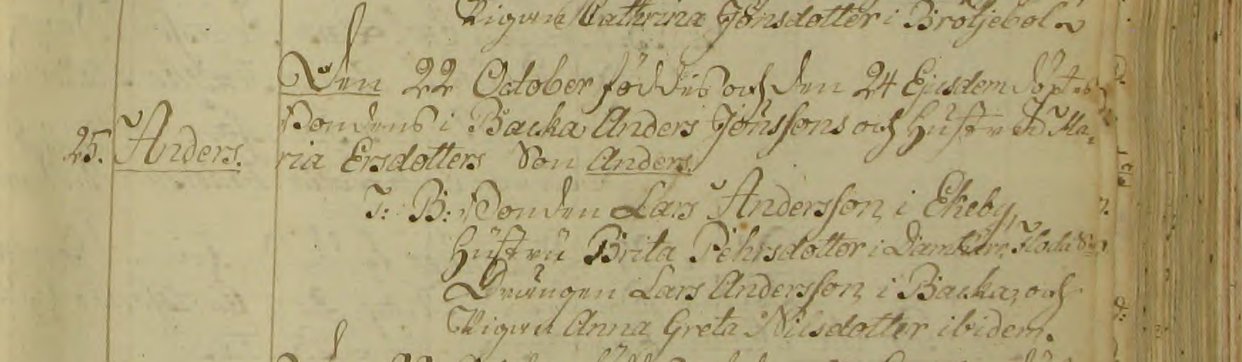 Pigan Cathrina Jönsdotter i Bröljebol.
Den 22 October föddes och den 24 Ejusdem döptes
Bondens i Backa Anders Jönssons och Hustrun Ma=
25. Anders. ria Ersdotters Son Anders.
T: B: Bonden Lars Andersson i Ekeby,
Hustru Brita Pehrsdotter i Damkärr, Floda
Drängen Lars Andersson i Backa, och
Pigan Anna Greta Nilsdotter ibidem.